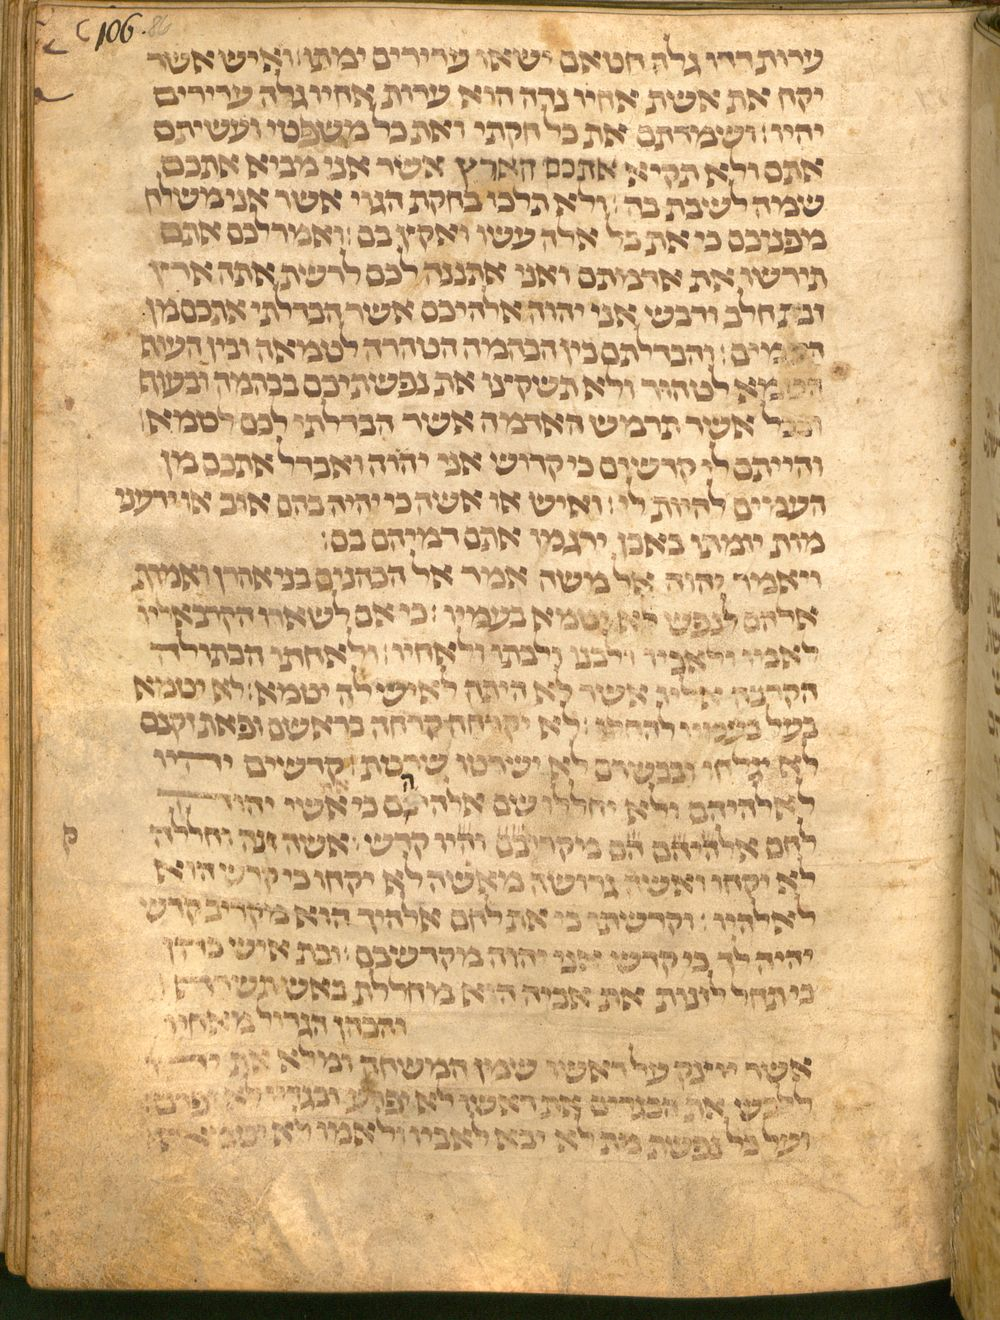 106 86
ערות דדו גלה חטאם ישאו ערירים ימתו׃ ואיש אשר
יקח את אשת אחיו נדה הוא ערות אחיו גלה ערירים
יהיו׃ ושמרתם את כל חקתי ואת כל משפטי ועשיתם
אתם ולא תקיא אתכם הארץ אשר אני מביא אתכם
שמה לשבת בה׃ ולא תלכו בחקת הגוי אשר אני משלח
מפניכם כי את כל אלה עשו ואקץ בם׃ ואמר לכם אתם
תירשו את אדמתם ואני אתננה לכם לרשת אתה ארץ
זבת חלב ודבש אני יהוה אלהיכם אשר הבדלתי אתכם מן
העמים׃ והבדלתם בין הבהמה הטהרה לטמאה ובין העוף
הטמא לטהור ולא תשקיצו את נפשתיכם בבהמה ובעוף
ובכל אשר תרמש האדמה אשר הבדלתי לכם לטמא׃
והייתם לי קדשים כי קדוש אני יהוה ואבדל אתכם מן
העמים להיות לי׃ ואיש או אשה כי יהיה בהם אוב או ידעני
מות יומתו באבן ירגמו אתם דמיהם בם׃
ויאמר יהוה אל משה אמר אל הכהנים בני אהרן ואמרת
אלהם לנפש לא יטמא בעמיו׃ כי אם לשארו הקרב אליו
לאמו ולאביו ולבנו ולבתו ולאחיו׃ ולאחתו הבתולה
הקרובה אליו אשר לא היתה לאיש לה יטמא׃ לא יטמא
בעל בעמיו להחלו׃ לא יקרחה קרחה בראשם ופאת זקנם
לא יגלחו ובבשרם לא ישרטו שרטת׃ קדשים יהיו
לאלהיהם ולא יחללו שם אלהיהם כי את אשי יהוה
לחם אלהיהם הם מקריבם והיו קדש׃ אשה זנה וחללה
לא יקחו ואשה גרושה מאשה לא יקחו כי קדש הוא
לאלהיו׃ וקדשתו כי את לחם אלהיך הוא מקריב קדש
יהיה לך כי קדוש אני יהוה מקדשכם׃ ובת איש כהן
כי תחל לזנות את אביה היא מחללת באש תשרף׃
והכהן הגדול מאחיו
אשר יוצק על ראשו שמן המשחה ומלא את ידו
ללבש את הבגדים את ראשו לא יפרע ובגדיו לא יפרם׃
ועל כל נפשת מת לא יבא לאביו ולאמו לא יטמא